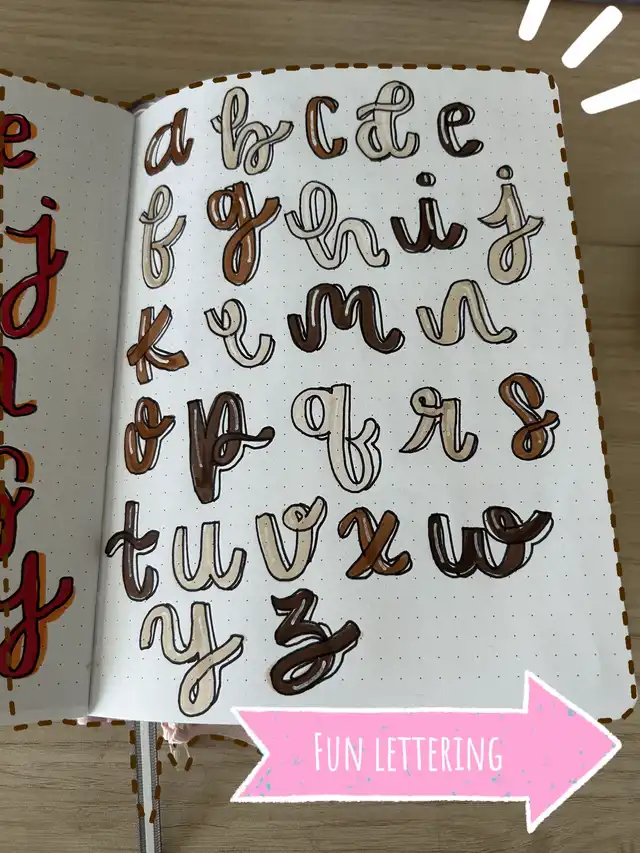 e
j
y
a b c d e
f g h i j
k l m n
o p q r s
t u v x w
y z
FUN LETTERING